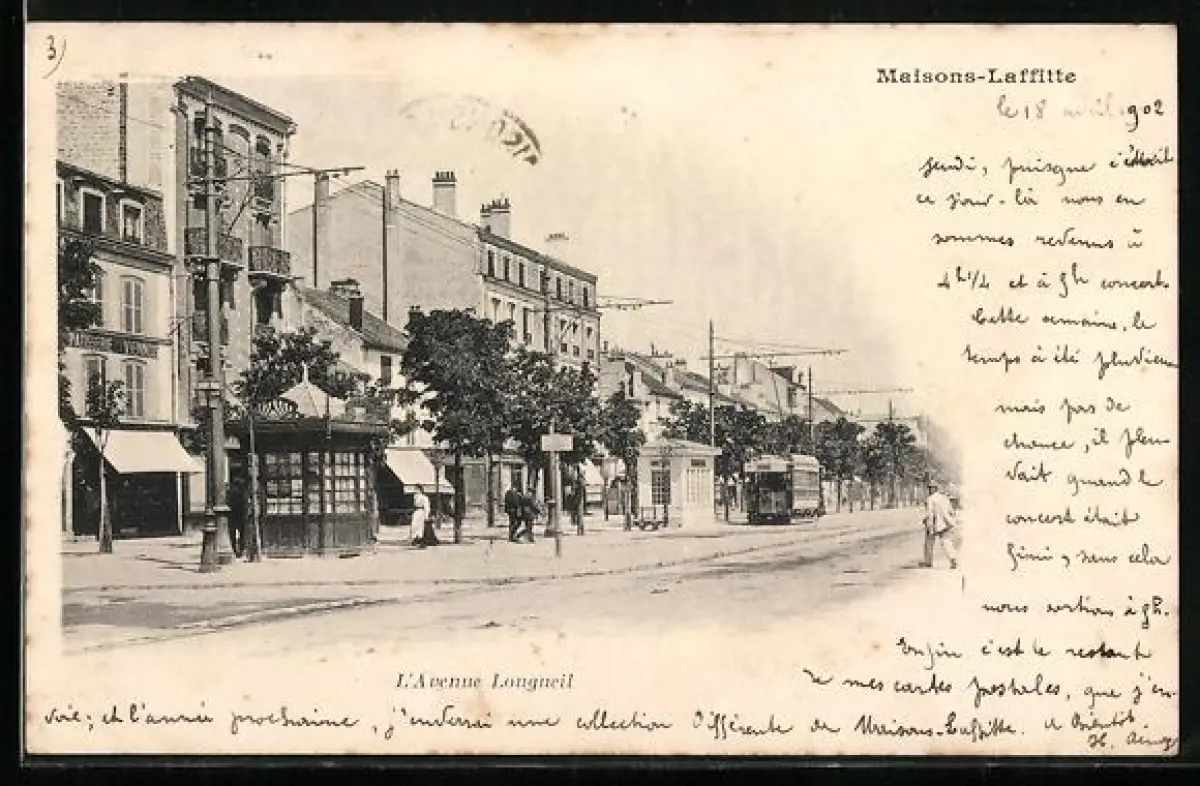 3)
Maisons-Laffitte
le 18 avril 1902
jeudi, puisque c'était
ce jour-là nous en
sommes revenus à
4h 1/4 et à 8h concert.
Cette semaine, le
temps a été pluvieux
mais pas de
chance, il pleu-
vait quand le
concert était
fini, sans cela
nous sortions à 8h.
Enfin c'est le restant
de mes cartes postales, que j'en-
L'Avenue Longueil
voie; et l'année prochaine, j'enverrai une collection différente de Maisons-Laffitte. A Bientôt.
H.